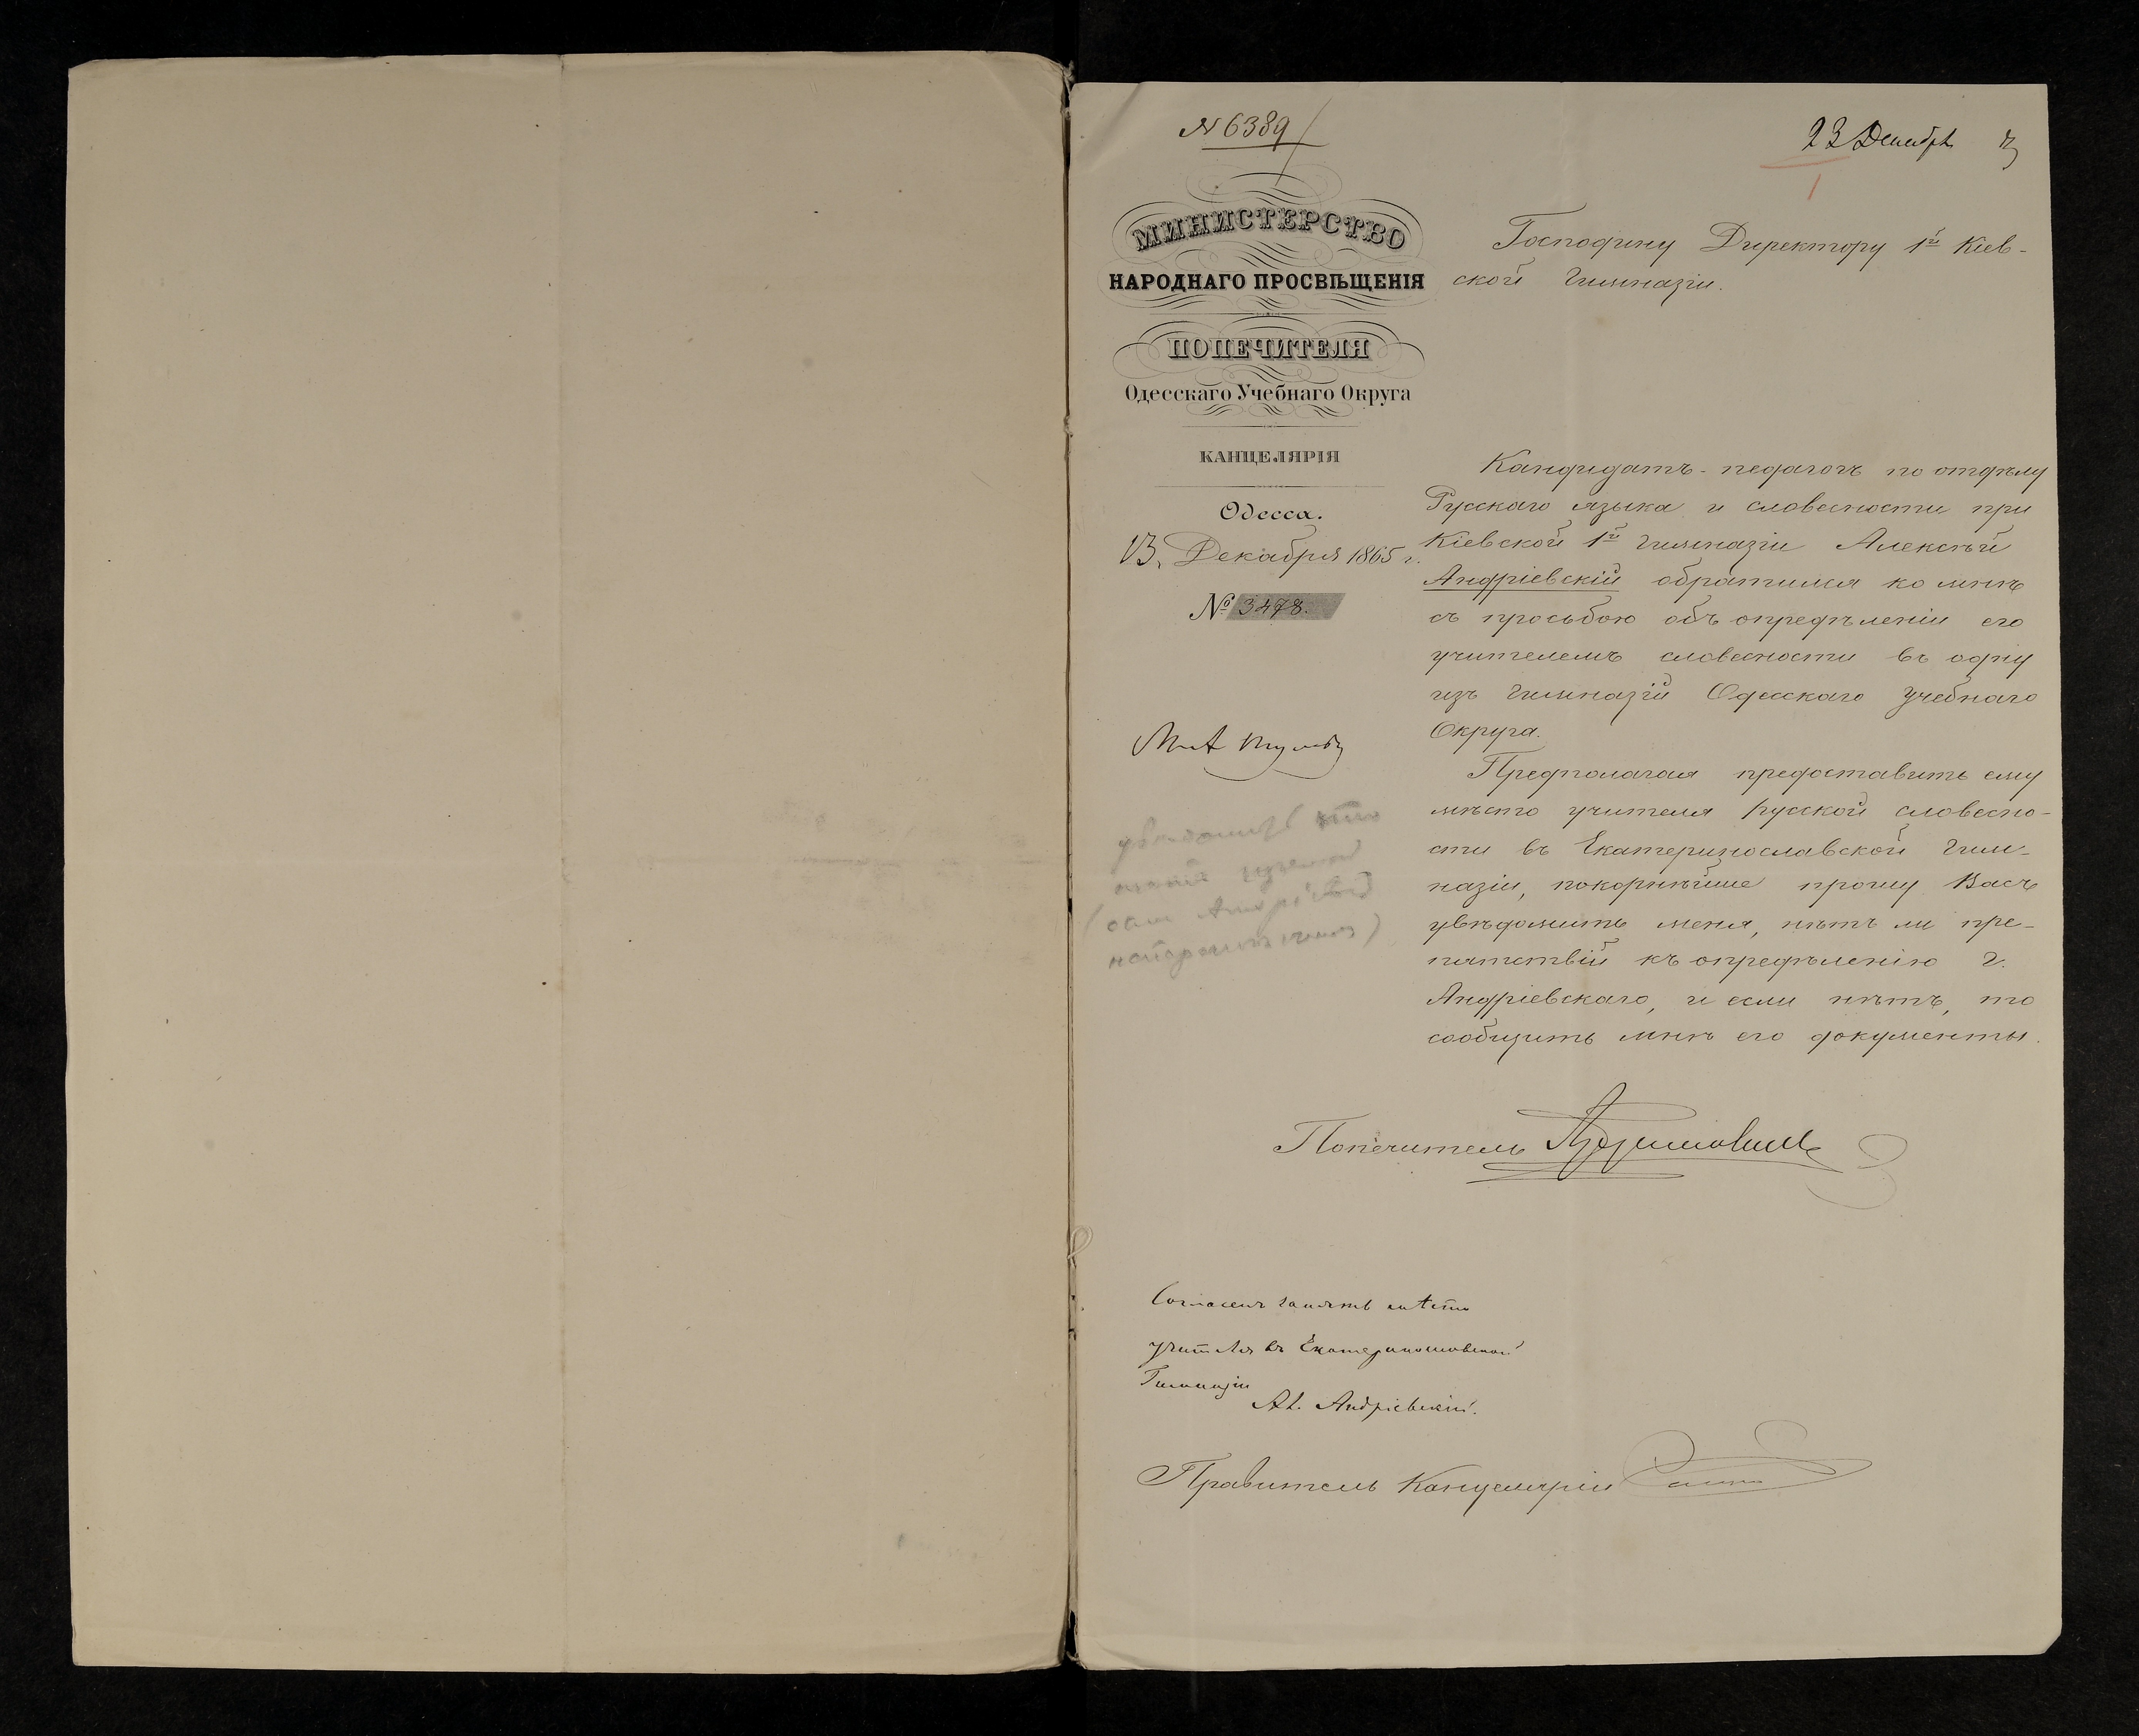 № 6389
23 Декабря
1
МИНИСТЕРСТВО
НАРОДНАГО ПРОСВѢЩЕНІЯ
ПОПЕЧИТЕЛЯ
Одесскаго Учебнаго Округа
КАНЦЕЛЯРІЯ
Одесса.
13 Декабря 1865 г.
№ 3478.
Господину Директору 1й Кіев-
ской Гимназіи.
Кандидатъ-педагогъ по отдѣлу
Русскаго языка и словесности при
Кіевской 1й Гимназіи Алексѣй
Андріевскій обратился ко мнѣ
съ просьбою объ опредѣленіи его
учителемъ словесности въ одну
изъ гимназій Одесскаго учебнаго
Округа.
Предполагая предоставить ему
мѣсто учителя русской словесно-
сти въ Екатеринославской Гим-
назіи, покорнѣйше прошу Васъ
увѣдомить меня, нѣтъ ли пре-
пятствій къ опредѣленію г.
Андріевскаго, и если нѣтъ, то
сообщить мнѣ его документы.
Попечитель
Согласенъ занять мѣсто
учителя въ Екатеринославской
Гимназіи
Ал. Андріевскій.
Правитель Канцеляріи